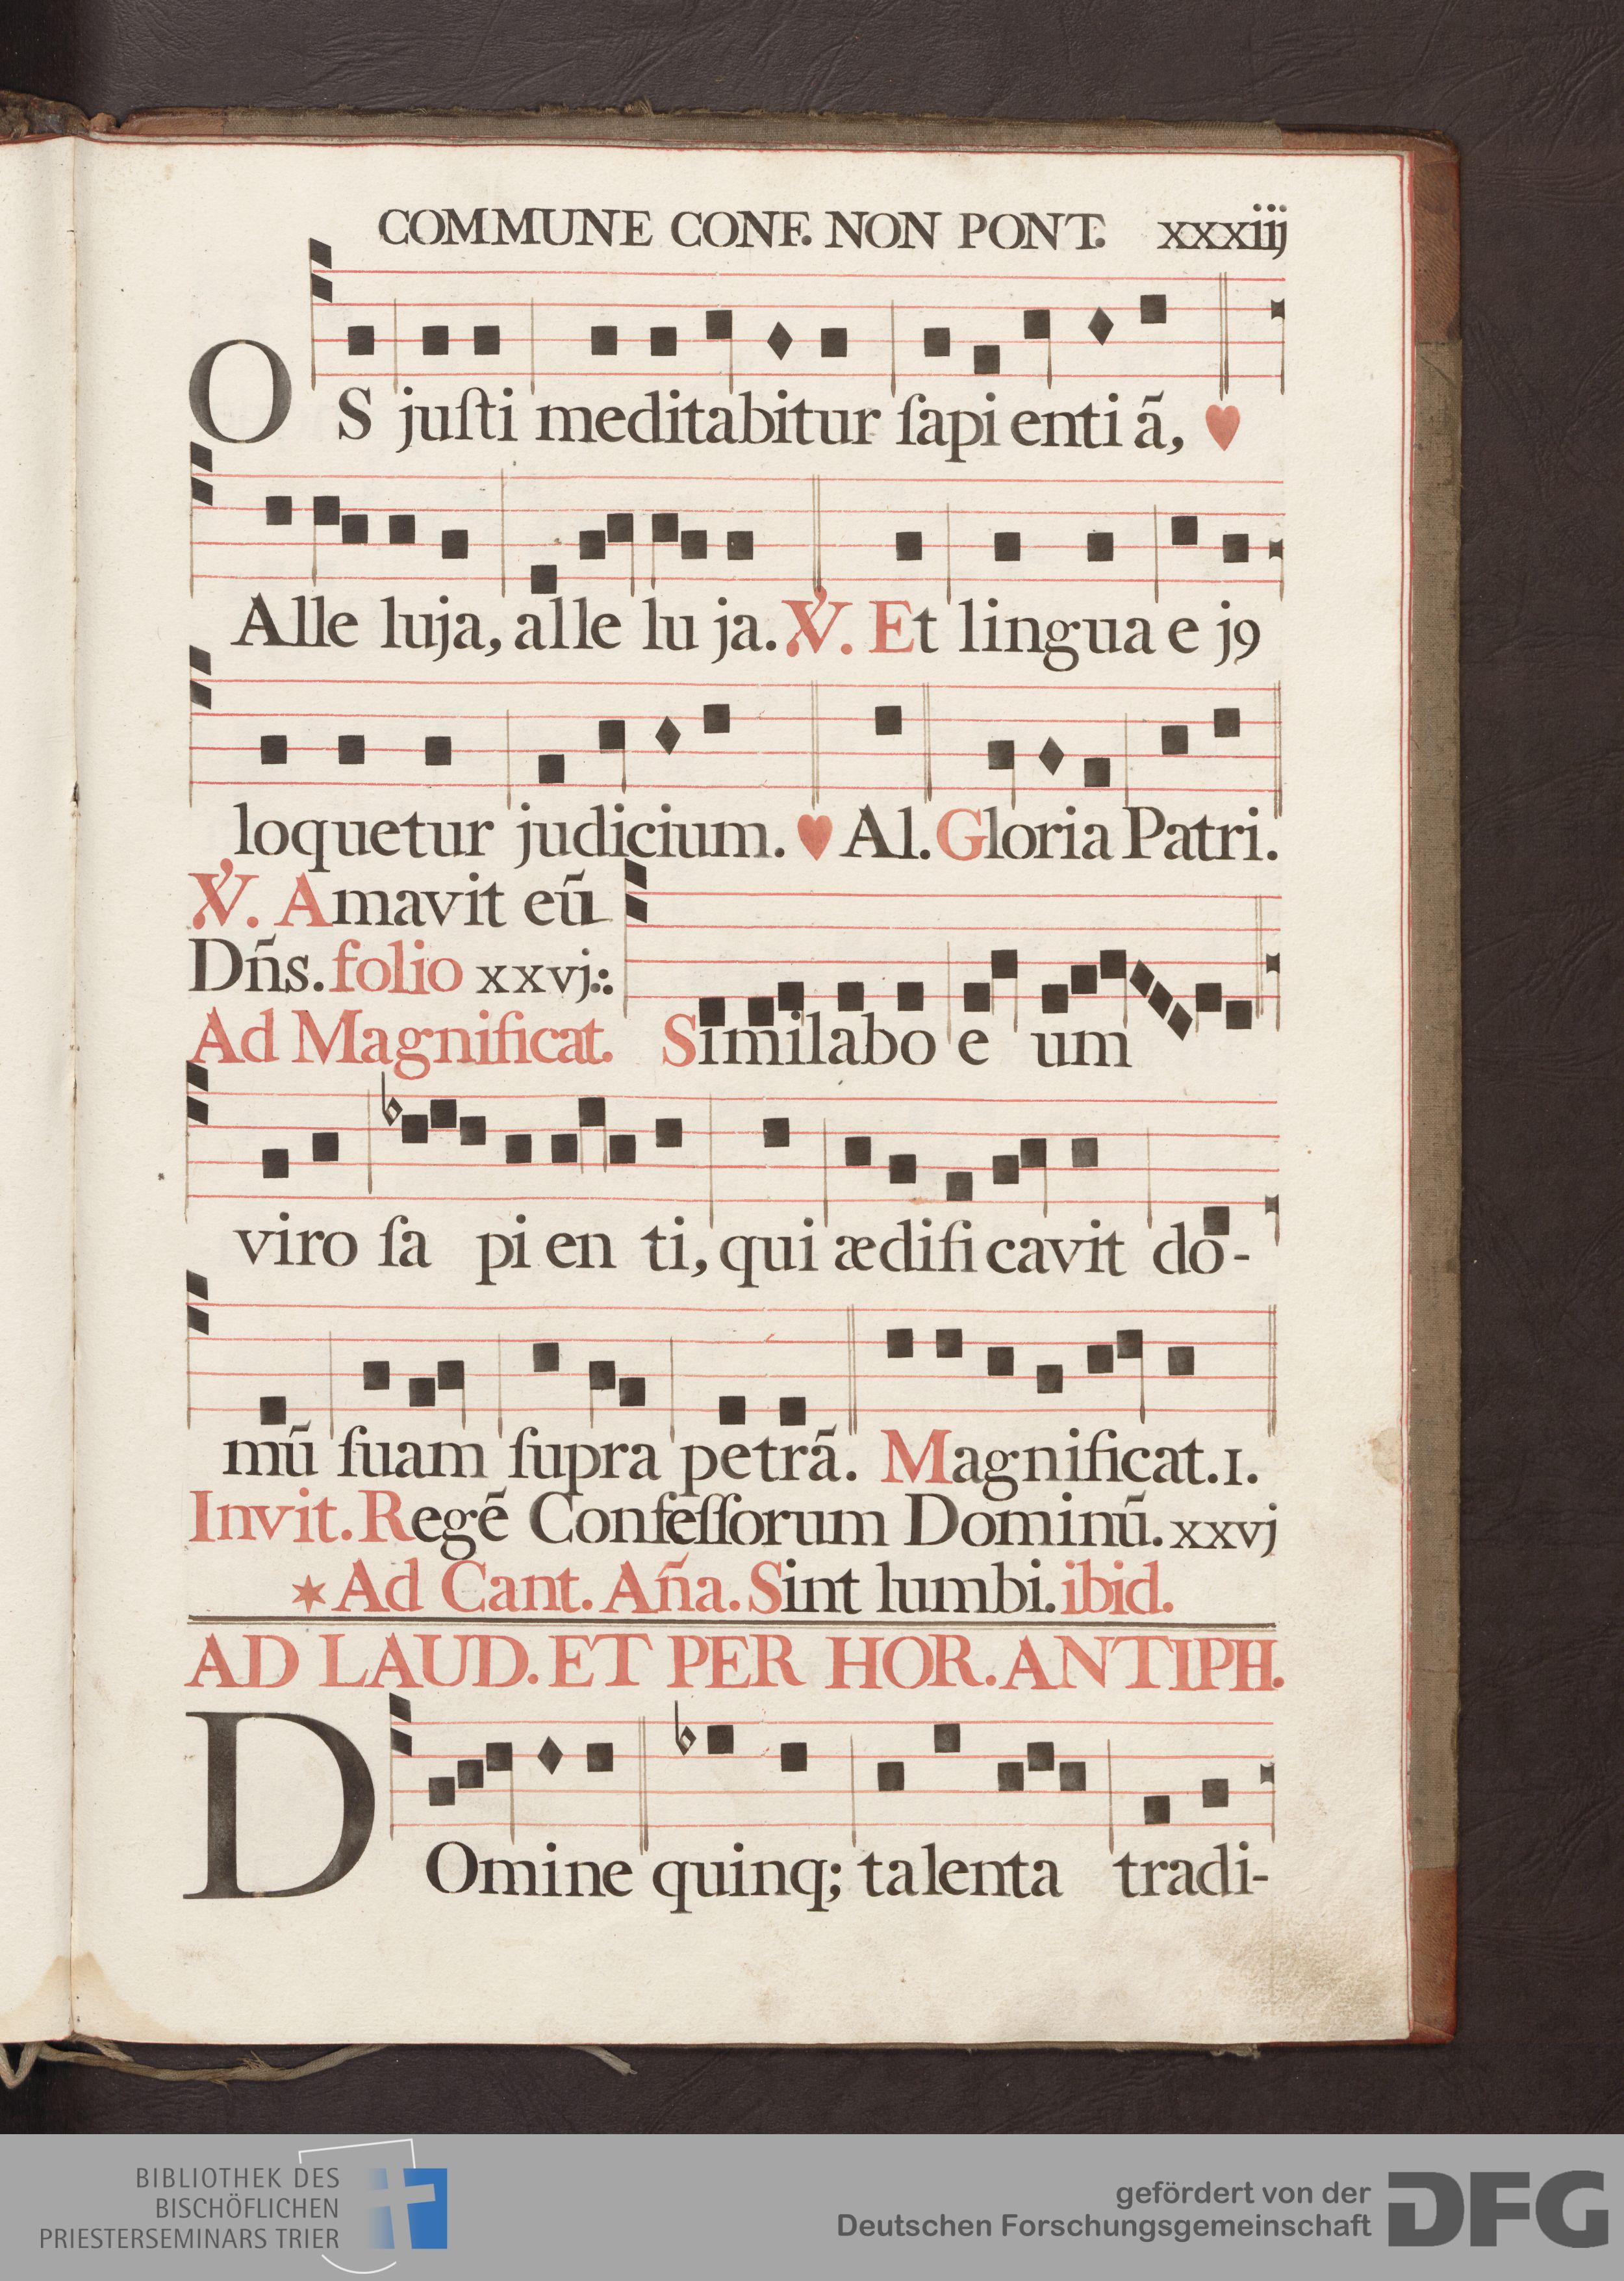 COMMUNE CONF. NON PONT. xxxiij
OS juſti meditabitur ſapi enti ã, ♥
Alle luja, alle lu ja. ℣. Et lingua e j9
loquetur judicium. ♥ Al. Gloria Patri.
℣. Amavit eũ
Dñs. folio xxvj.:
Ad Magnificat. Similabo e um
viro ſa pi en ti, qui ædifi cavit do-
mũ ſuam ſupra petrã. Magnificat. 1.
Invit. Regẽ Confeſſorum Dominũ. xxvj
✶ Ad Cant. Aña. Sint lumbi. ibid.
AD LAUD. ET PER HOR. ANTIPH.
DOmine quinq; talenta tradi-
BIBLIOTHEK DES
BISCHÖFLICHEN
PRIESTERSEMINARS TRIER
gefördert von der
Deutschen Forschungsgemeinschaft
DFG